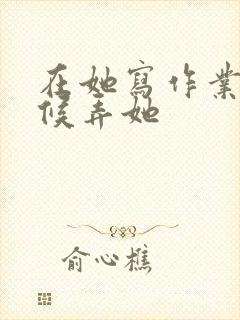 在她寫作業
候弄她
俞心樵